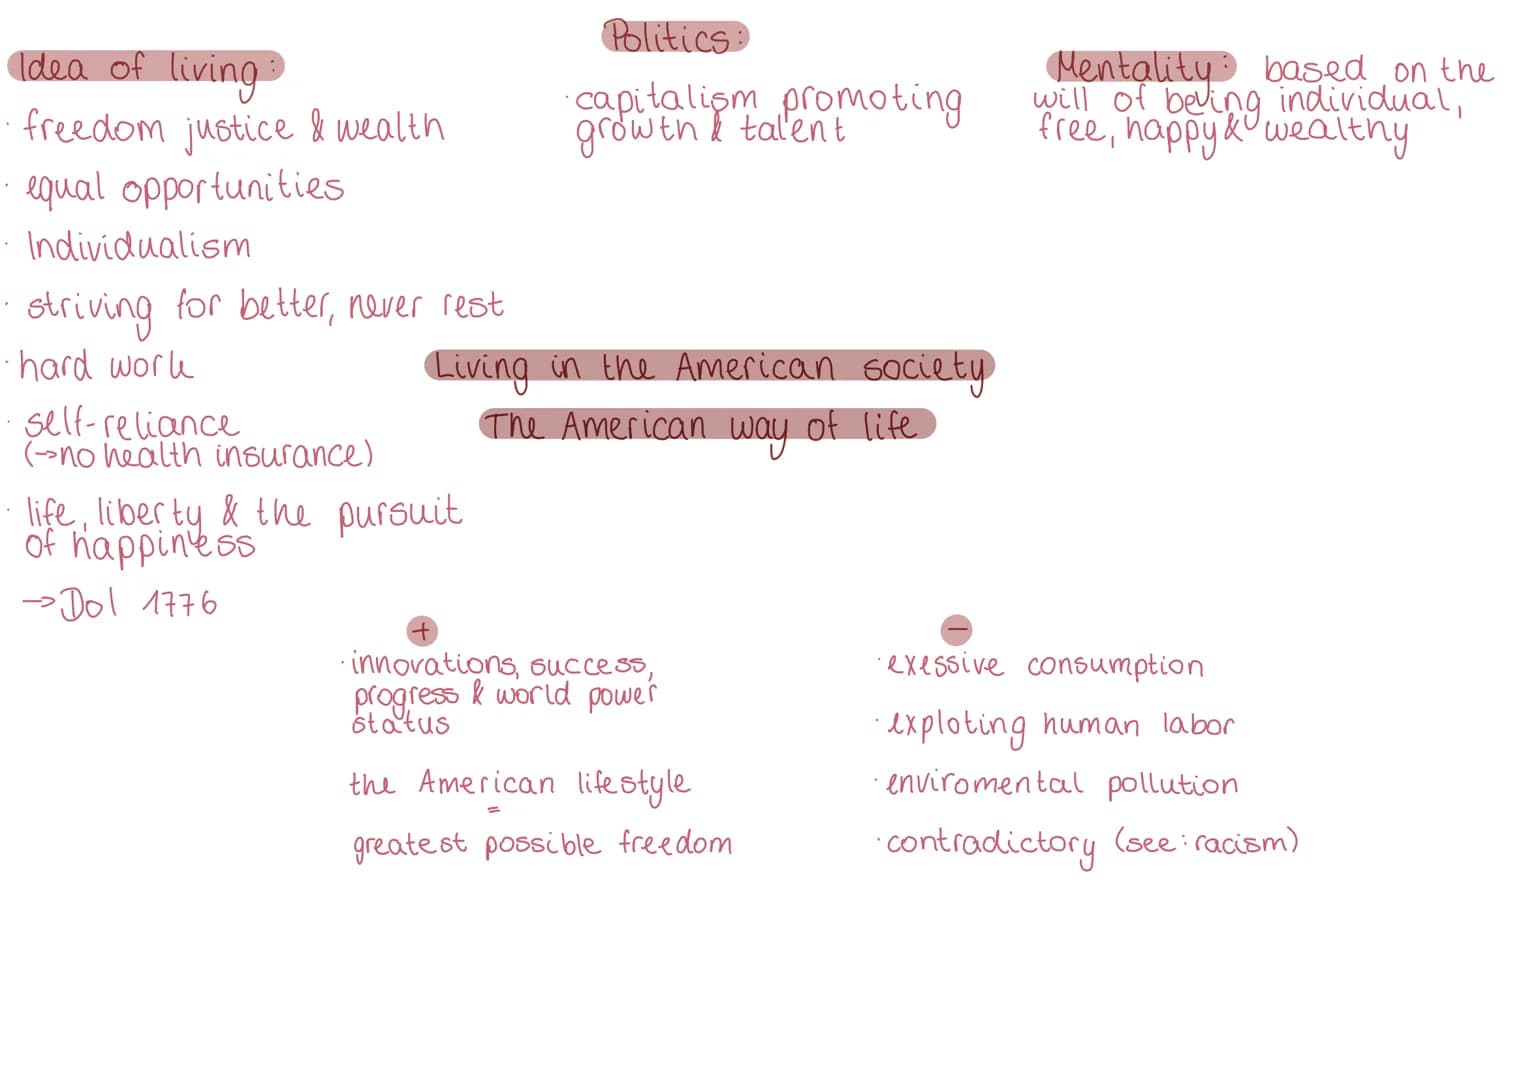 Idea of living:
· freedom justice & wealth
· equal opportunities
· Individualism
· striving for better, never rest
· hard work
· self-reliance
(→no health insurance)
· life, liberty & the pursuit
of happiness
→DoI 1776
Politics:
· capitalism promoting
growth & talent
Mentality: based on the
will of being individual,
free, happy & wealthy
Living in the American society
The American way of life
+
· innovations, success,
progress & world power
status
the American lifestyle
=
greatest possible freedom
−
· exessive consumption
· exploting human labor
· enviromental pollution
· contradictory (see: racism)